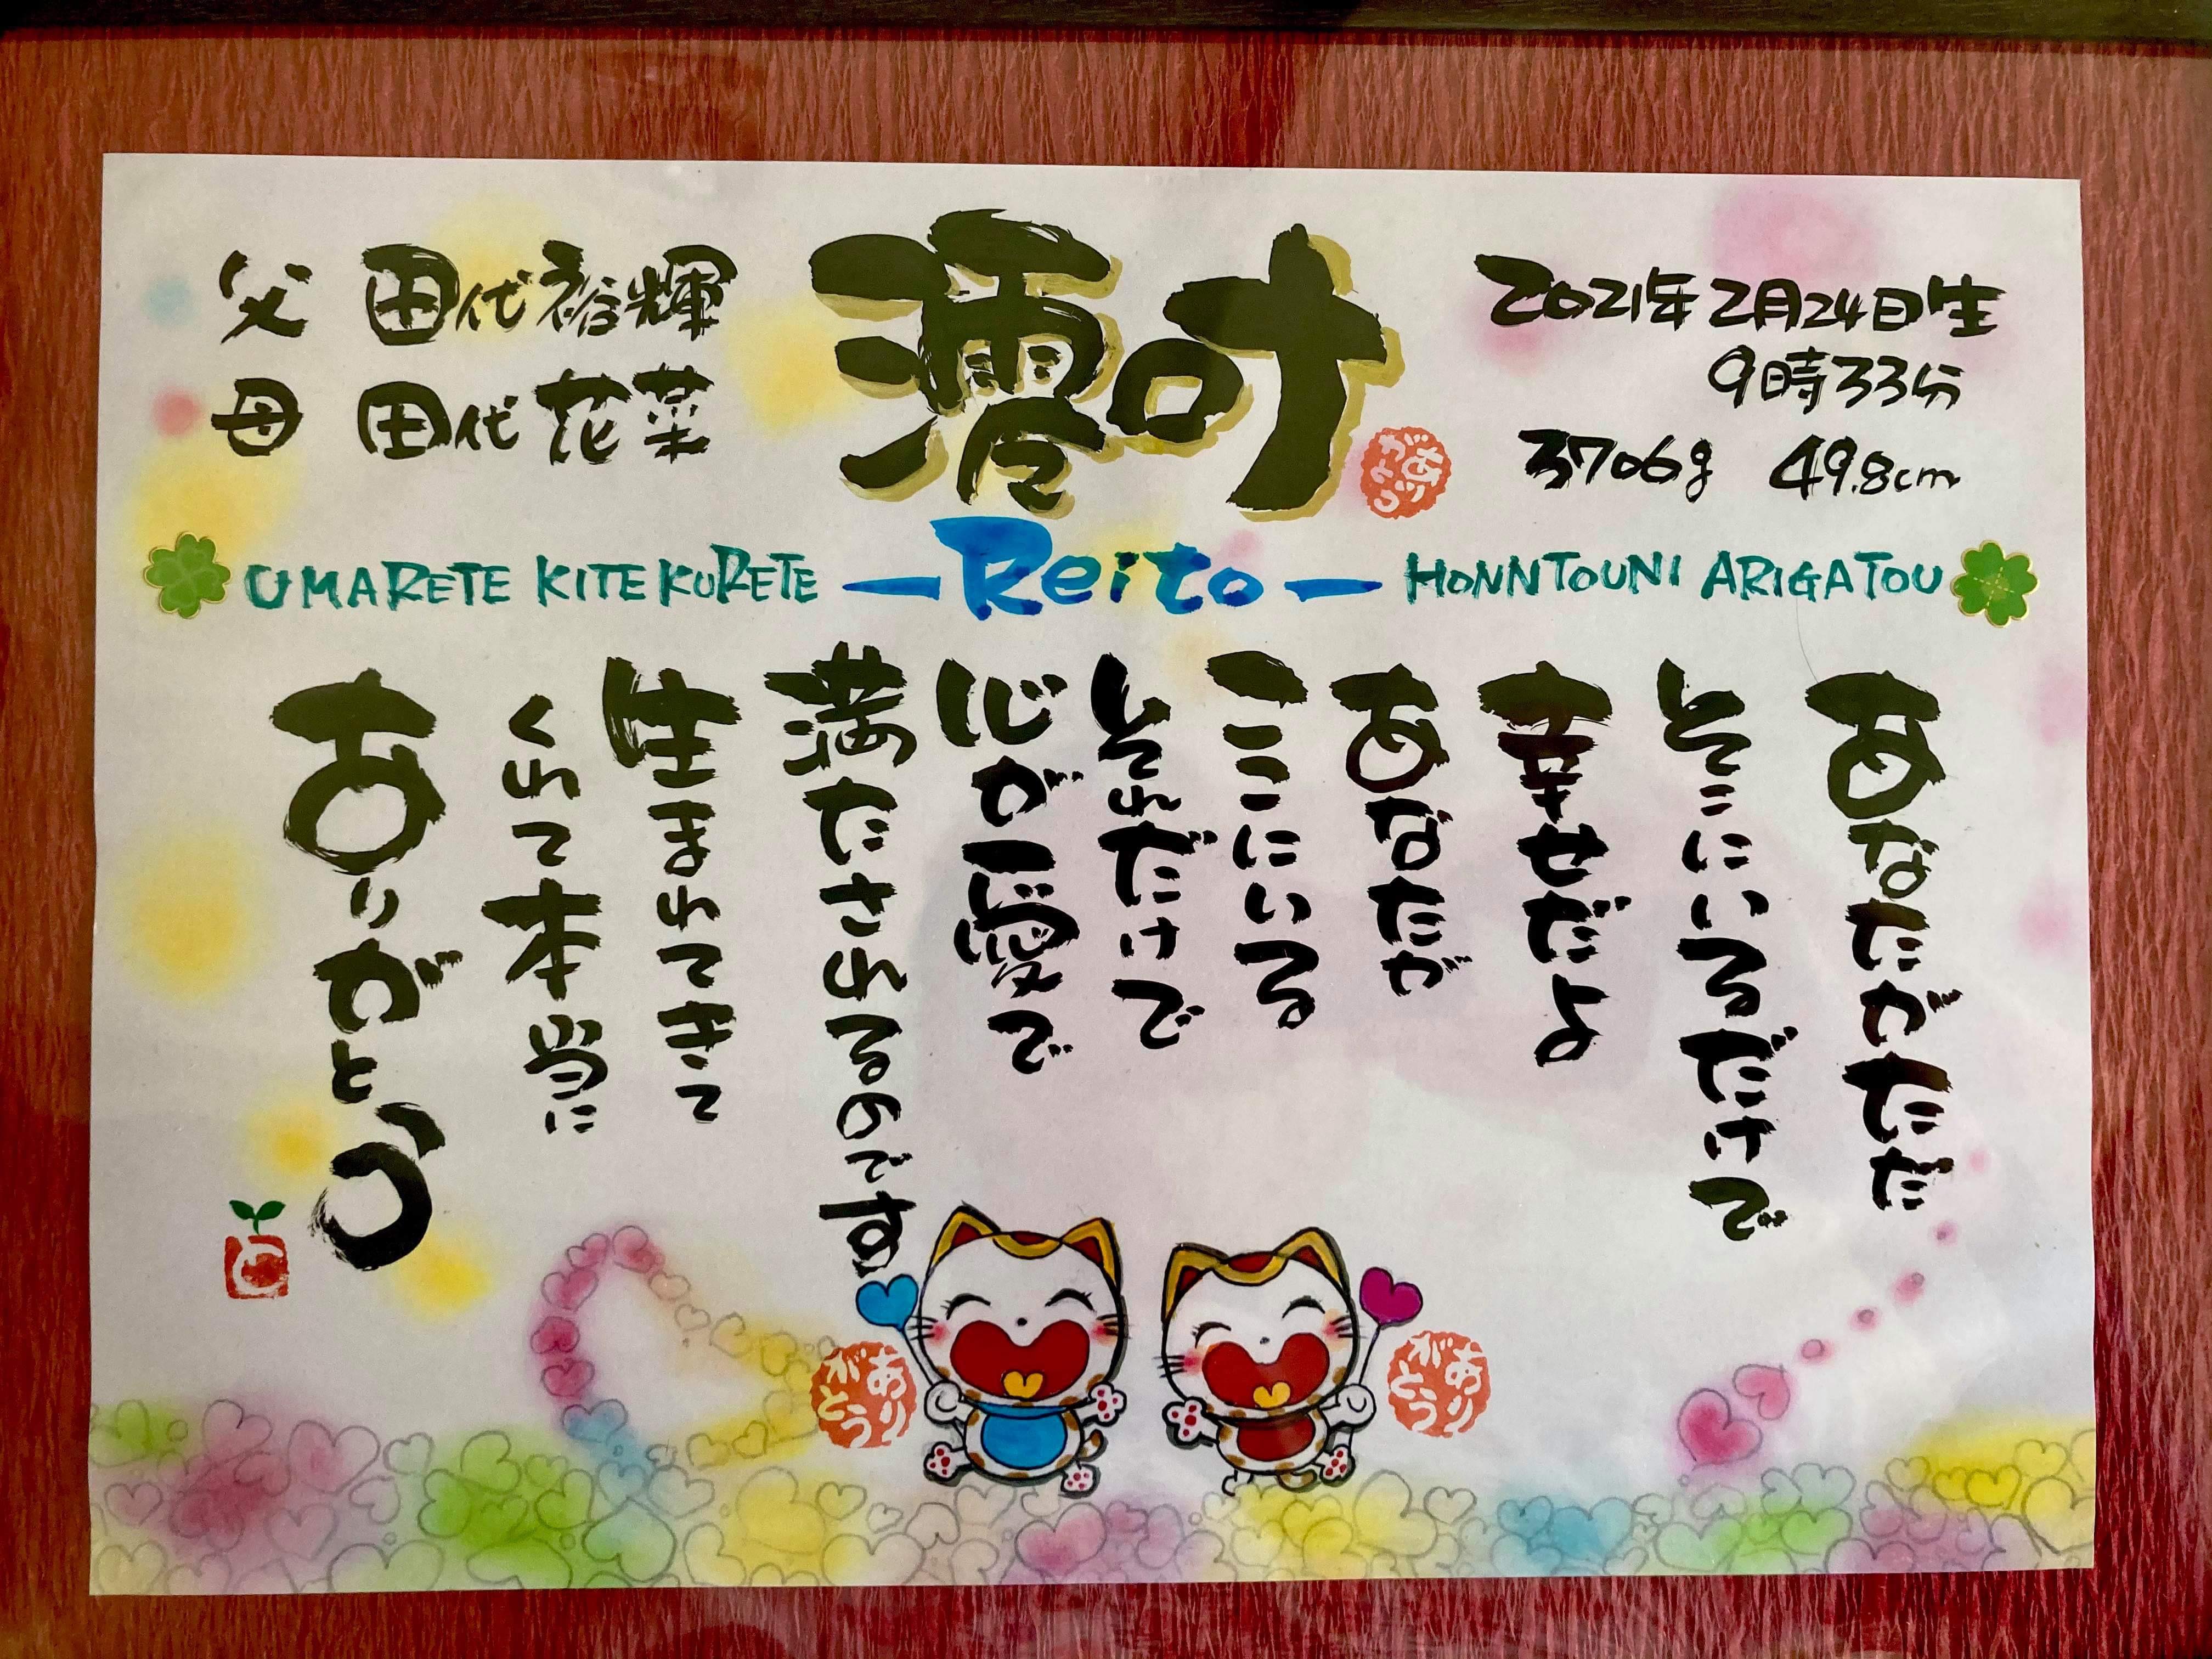 父 田代裕輝
母 田代花菜
澪叶
ありがとう
2021年2月24日生
9時33分
3706g 49.8cm
UMARETE KITEKURETE —Reito— HONNTOUNI ARIGATOU
あなたがただ
そこにいるだけで
幸せだよ
あなたが
ここにいる
それだけで
心が愛で
満たされるのです
生まれてきて
くれて本当に
ありがとう
ありがとう
ありがとう